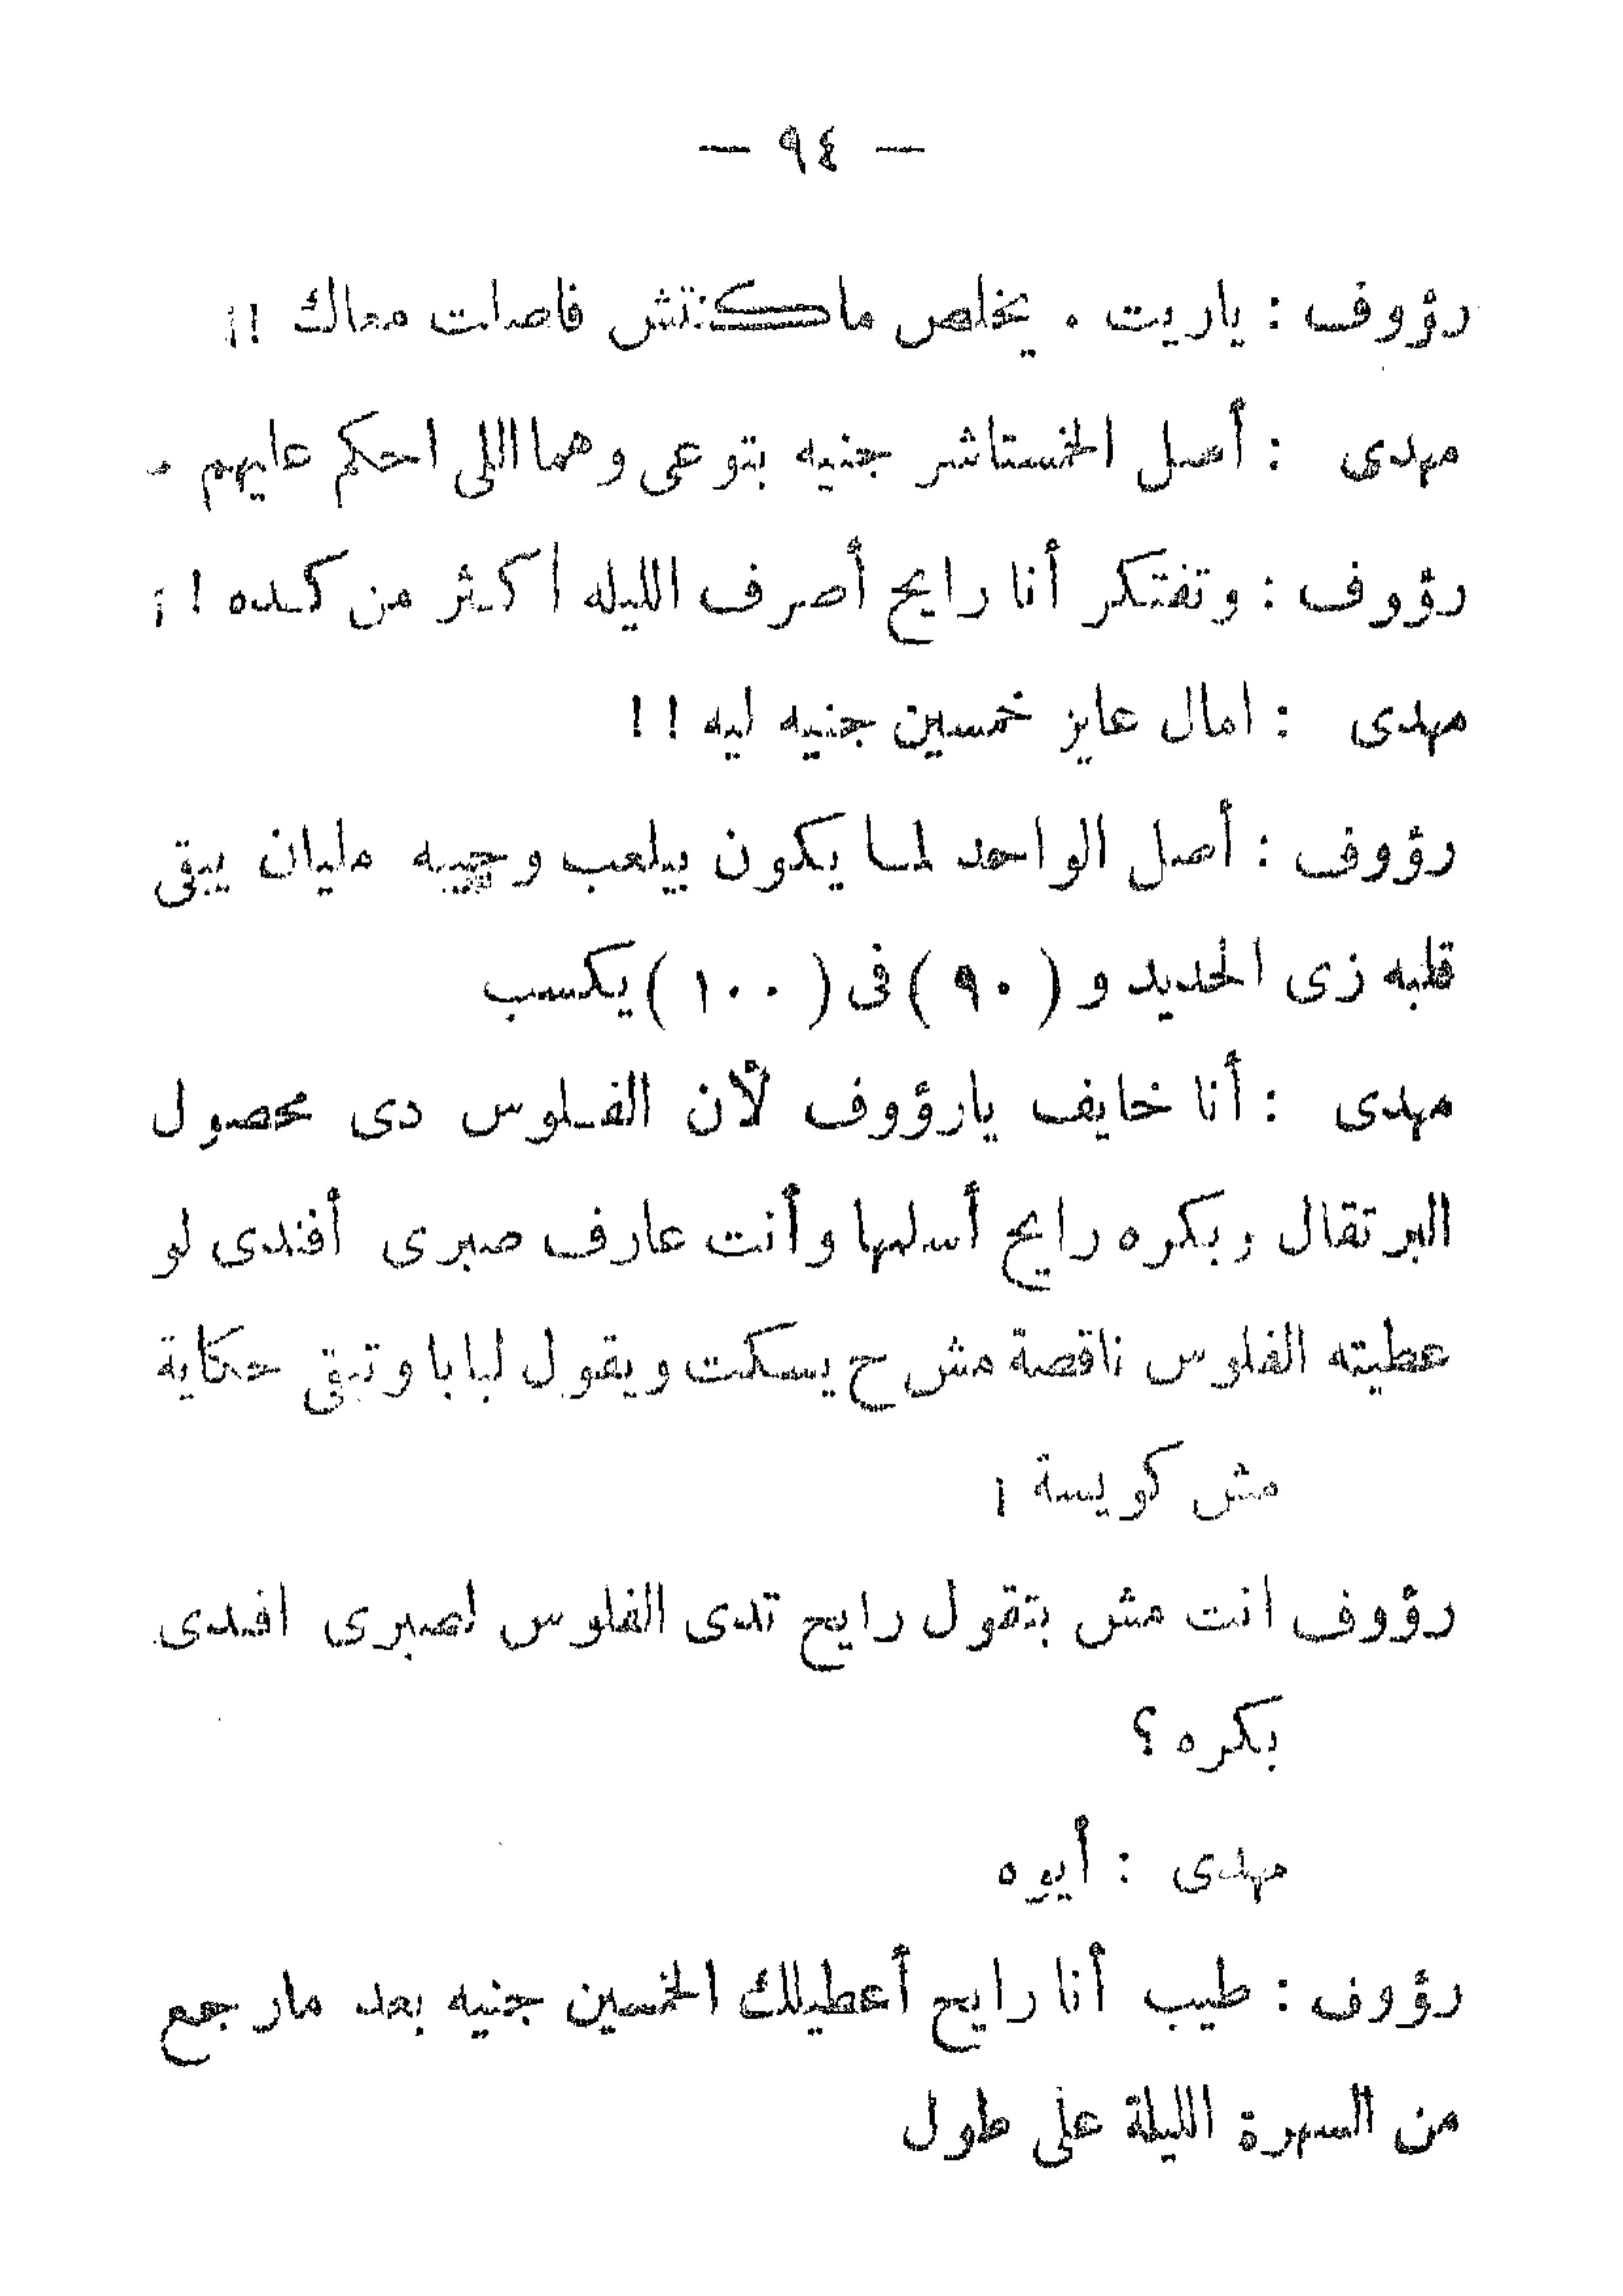 — ٩٤ —
رؤوف : ياريت . يخلص ماكنتش فاصلت معاك !!
مهدى : أصل الخمستاشر جنيه بتوعى وهما اللى احكم عليهم .
رؤوف : وتفتكر أنا رايح أصرف الليله أكثر من كده !!
مهدى : امال عايز خمسين جنيه ليه !!
رؤوف : أصل الواحد لما يكون بيلعب وجيبه مليان يبقى
قلبه زى الحديد و (٩٠) فى (١٠٠) يكسب
مهدى : أنا خايف يارؤوف لأن الفلوس دى محصول
البرتقال وبكره رايح أسلمها وأنت عارف صبرى أفندى لو
عطيته الفلوس ناقصة مش ح يسكت ويقول لبابا وتبقى حكاية
مش كويسة !
رؤوف انت مش بتقول رايح تدى الفلوس لصبرى افندى
بكره ؟
مهدى : أيوه
رؤوف : طيب أنا رايح أعطيلك الخمسين جنيه بعد مارجع
من السهرة الليلة على طول